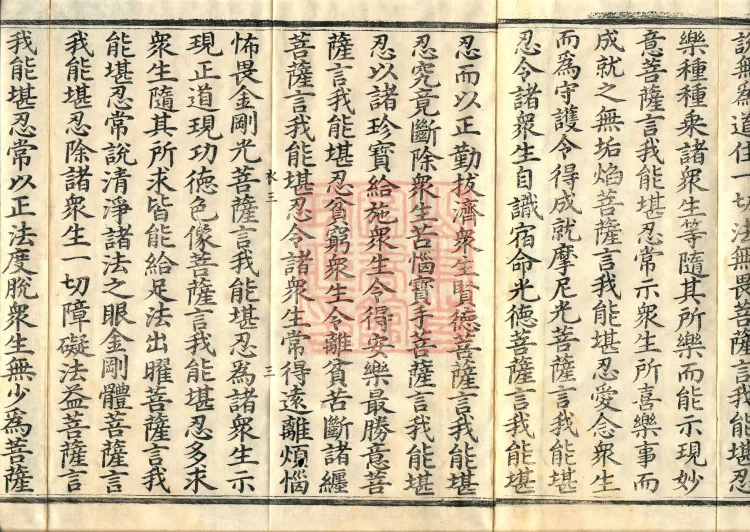 說無為道住一切法無畏菩薩言我能堪忍
樂種種乘諸衆生等隨其所樂而能示現妙
意菩薩言我能堪忍常示衆生所喜樂事而
成就之無垢焰菩薩言我能堪忍愛念衆生
而爲守護令得成就摩尼光菩薩言我能堪
忍令諸衆生自識宿命光德菩薩言我能堪
忍而以正勤拔濟衆生賢德菩薩言我能堪
忍究竟斷除衆生苦惱寶手菩薩言我能堪
忍以諸珍寶給施衆生令得安樂最勝意菩
薩言我能堪忍貧窮衆生令離貧苦斷諸纏
菩薩言我能堪忍令諸衆生常得遠離煩惱
衣三 三
怖畏金剛光菩薩言我能堪忍爲諸衆生示
現正道現功德色像菩薩言我能堪忍多求
衆生隨其所求皆能給足法出曜菩薩言我
能堪忍常說清淨諸法之眼金剛體菩薩言
我能堪忍除諸衆生一切障礙法益菩薩言
我能堪忍常以正法度脫衆生無少爲菩薩